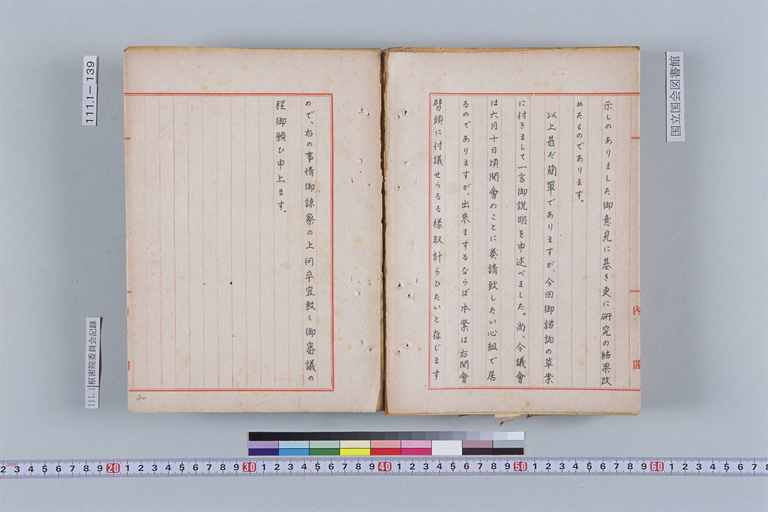 示しのありました御意見に基き更に研究の結果改
めたものであります。
以上甚だ簡單でありますが、今回御諮詢の草案
に付きまして一言御説明を申述べました。尚、今議會
は六月十日頃開會のことに奏請致したい心組で居
るのでありますが、出來まするならば本案は右開會
劈頭に付議せらるる樣取計らひたいと存じます
ので、右の事情御諒察の上何卒宜敷く御審議の
程御願ひ申上ます。
内閣
国立国会図書館
111.1-139
111.1 枢密院委員会記録